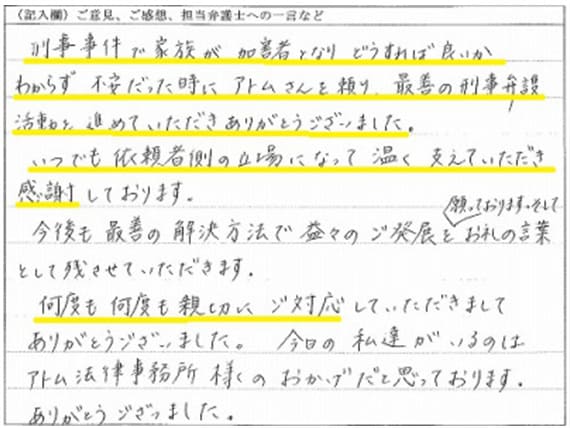 (記入欄)ご意見、ご感想、担当弁護士への一言など
刑事事件で家族が加害者となりどうすれば良いか
わからず不安だった時にアトムさんを頼り、最善の刑事弁護
活動を進めていただきありがとうございました。
いつでも依頼者側の立場になって温く支えていただき
感謝しております。
願っております。そして
今後も最善の解決方法で益々のご発展をお礼の言葉
として残させていただきます。
何度も何度も親切にご対応していただきまして
ありがとうございました。 今日の私達がいるのは
アトム法律事務所様のおかげだと思っております。
ありがとうございました。